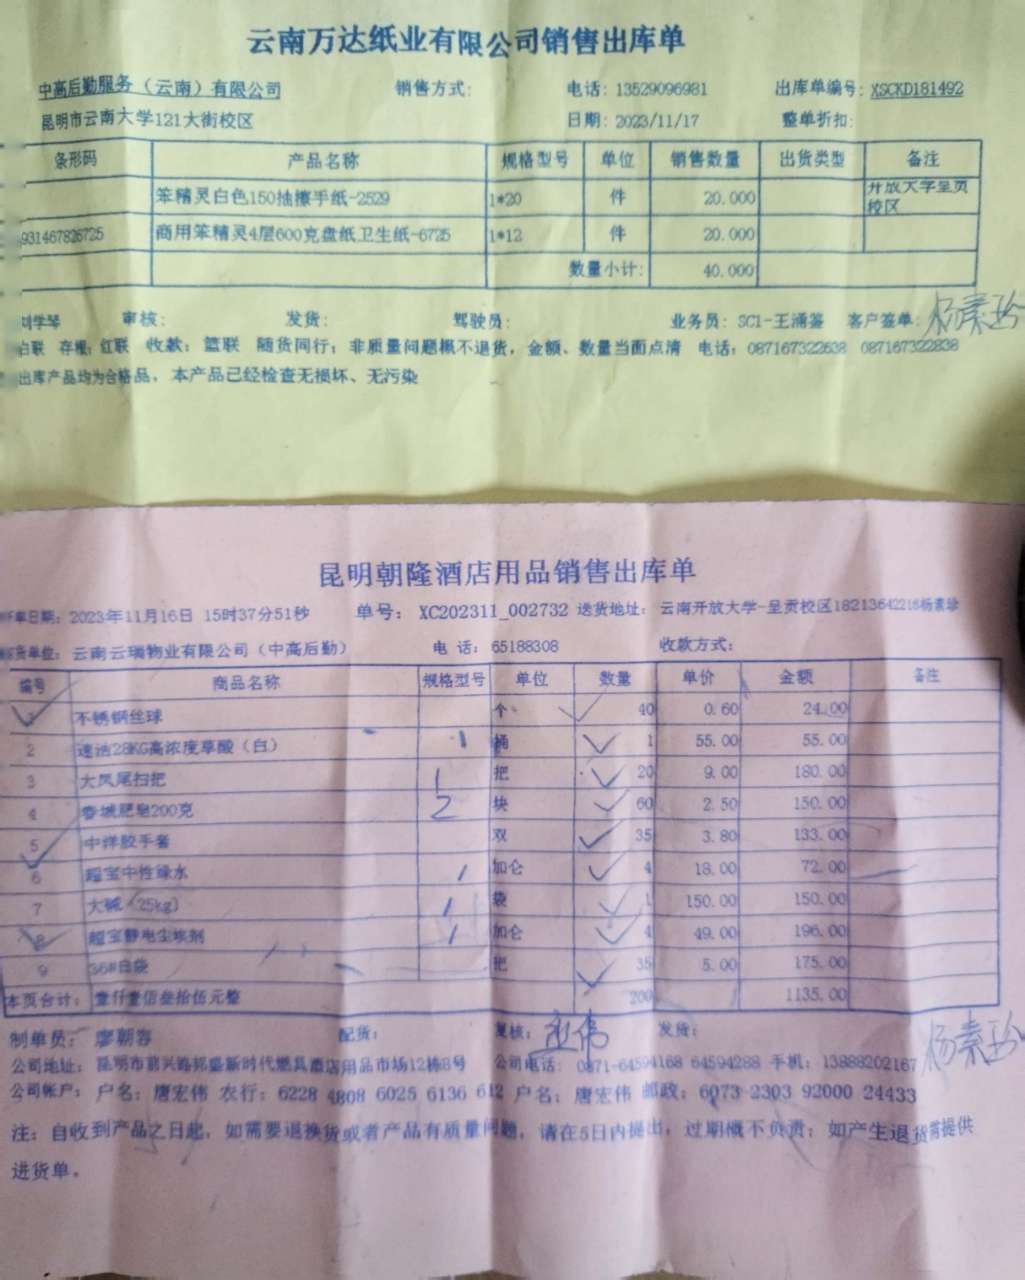 云南万达纸业有限公司销售出库单
中高后勤服务（云南）有限公司 销售方式: 电话: 13529096981 出库单编号: XSCKD181492
昆明市云南大学121大街校区 日期: 2023/11/17 整单折扣:
条形码 产品名称 规格型号 单位 销售数量 出货类型 备注
笨精灵白色150抽擦手纸-2529 1*20 件 20.000 开放大学呈贡校区
931467826725 商用笨精灵4层600克盘纸卫生纸-6725 1*12 件 20.000
数量小计: 40.000
刘学琴 审核: 发货: 驾驶员: 业务员: SC1-王涌鉴 客户签单: 杨素珍
白联 存根; 红联 收款; 篮联 随货同行; 非质量问题概不退货, 金额、数量当面点清 电话: 087167322638 087167322838
出库产品均为合格品, 本产品已经检查无损坏、无污染
昆明朝隆酒店用品销售出库单
开单日期: 2023年11月16日 15时37分51秒 单号: XC202311_002732 送货地址: 云南开放大学-呈贡校区18213642216杨素珍
购货单位: 云南云瑞物业有限公司（中高后勤） 电 话: 65188308 收款方式:
编号 商品名称 规格型号 单位 数量 单价 金额 备注
1 不锈钢丝球 个 40 0.60 24.00
2 速洁28KG高浓度草酸（白） 1 桶 1 55.00 55.00
3 大凤尾扫把 1 把 20 9.00 180.00
4 春城肥皂200克 2 块 60 2.50 150.00
5 中祥胶手套 双 35 3.80 133.00
6 超宝中性绿水 1 加仑 4 18.00 72.00
7 大碱（25kg） 1 袋 1 150.00 150.00
8 超宝静电尘埃剂 1 加仑 4 49.00 196.00
9 36#白袋 把 35 5.00 175.00
本页合计: 壹仟壹佰叁拾伍元整 200 1135.00
制单员: 廖朝容 配货: 复核: 发货: 杨素珍
公司地址: 昆明市前兴路邦盛新时代燃具酒店用品市场12栋8号 公司电话: 0871-64594168 64594288 手机: 13888202167
公司帐户: 户名: 唐宏伟 农行: 6228 4808 6025 6136 612 户名: 唐宏伟 邮政: 6073 2303 92000 24433
注: 自收到产品之日起, 如需要退换货或者产品有质量问题, 请在5日内提出, 过期概不负责; 如产生退货需提供
进货单。